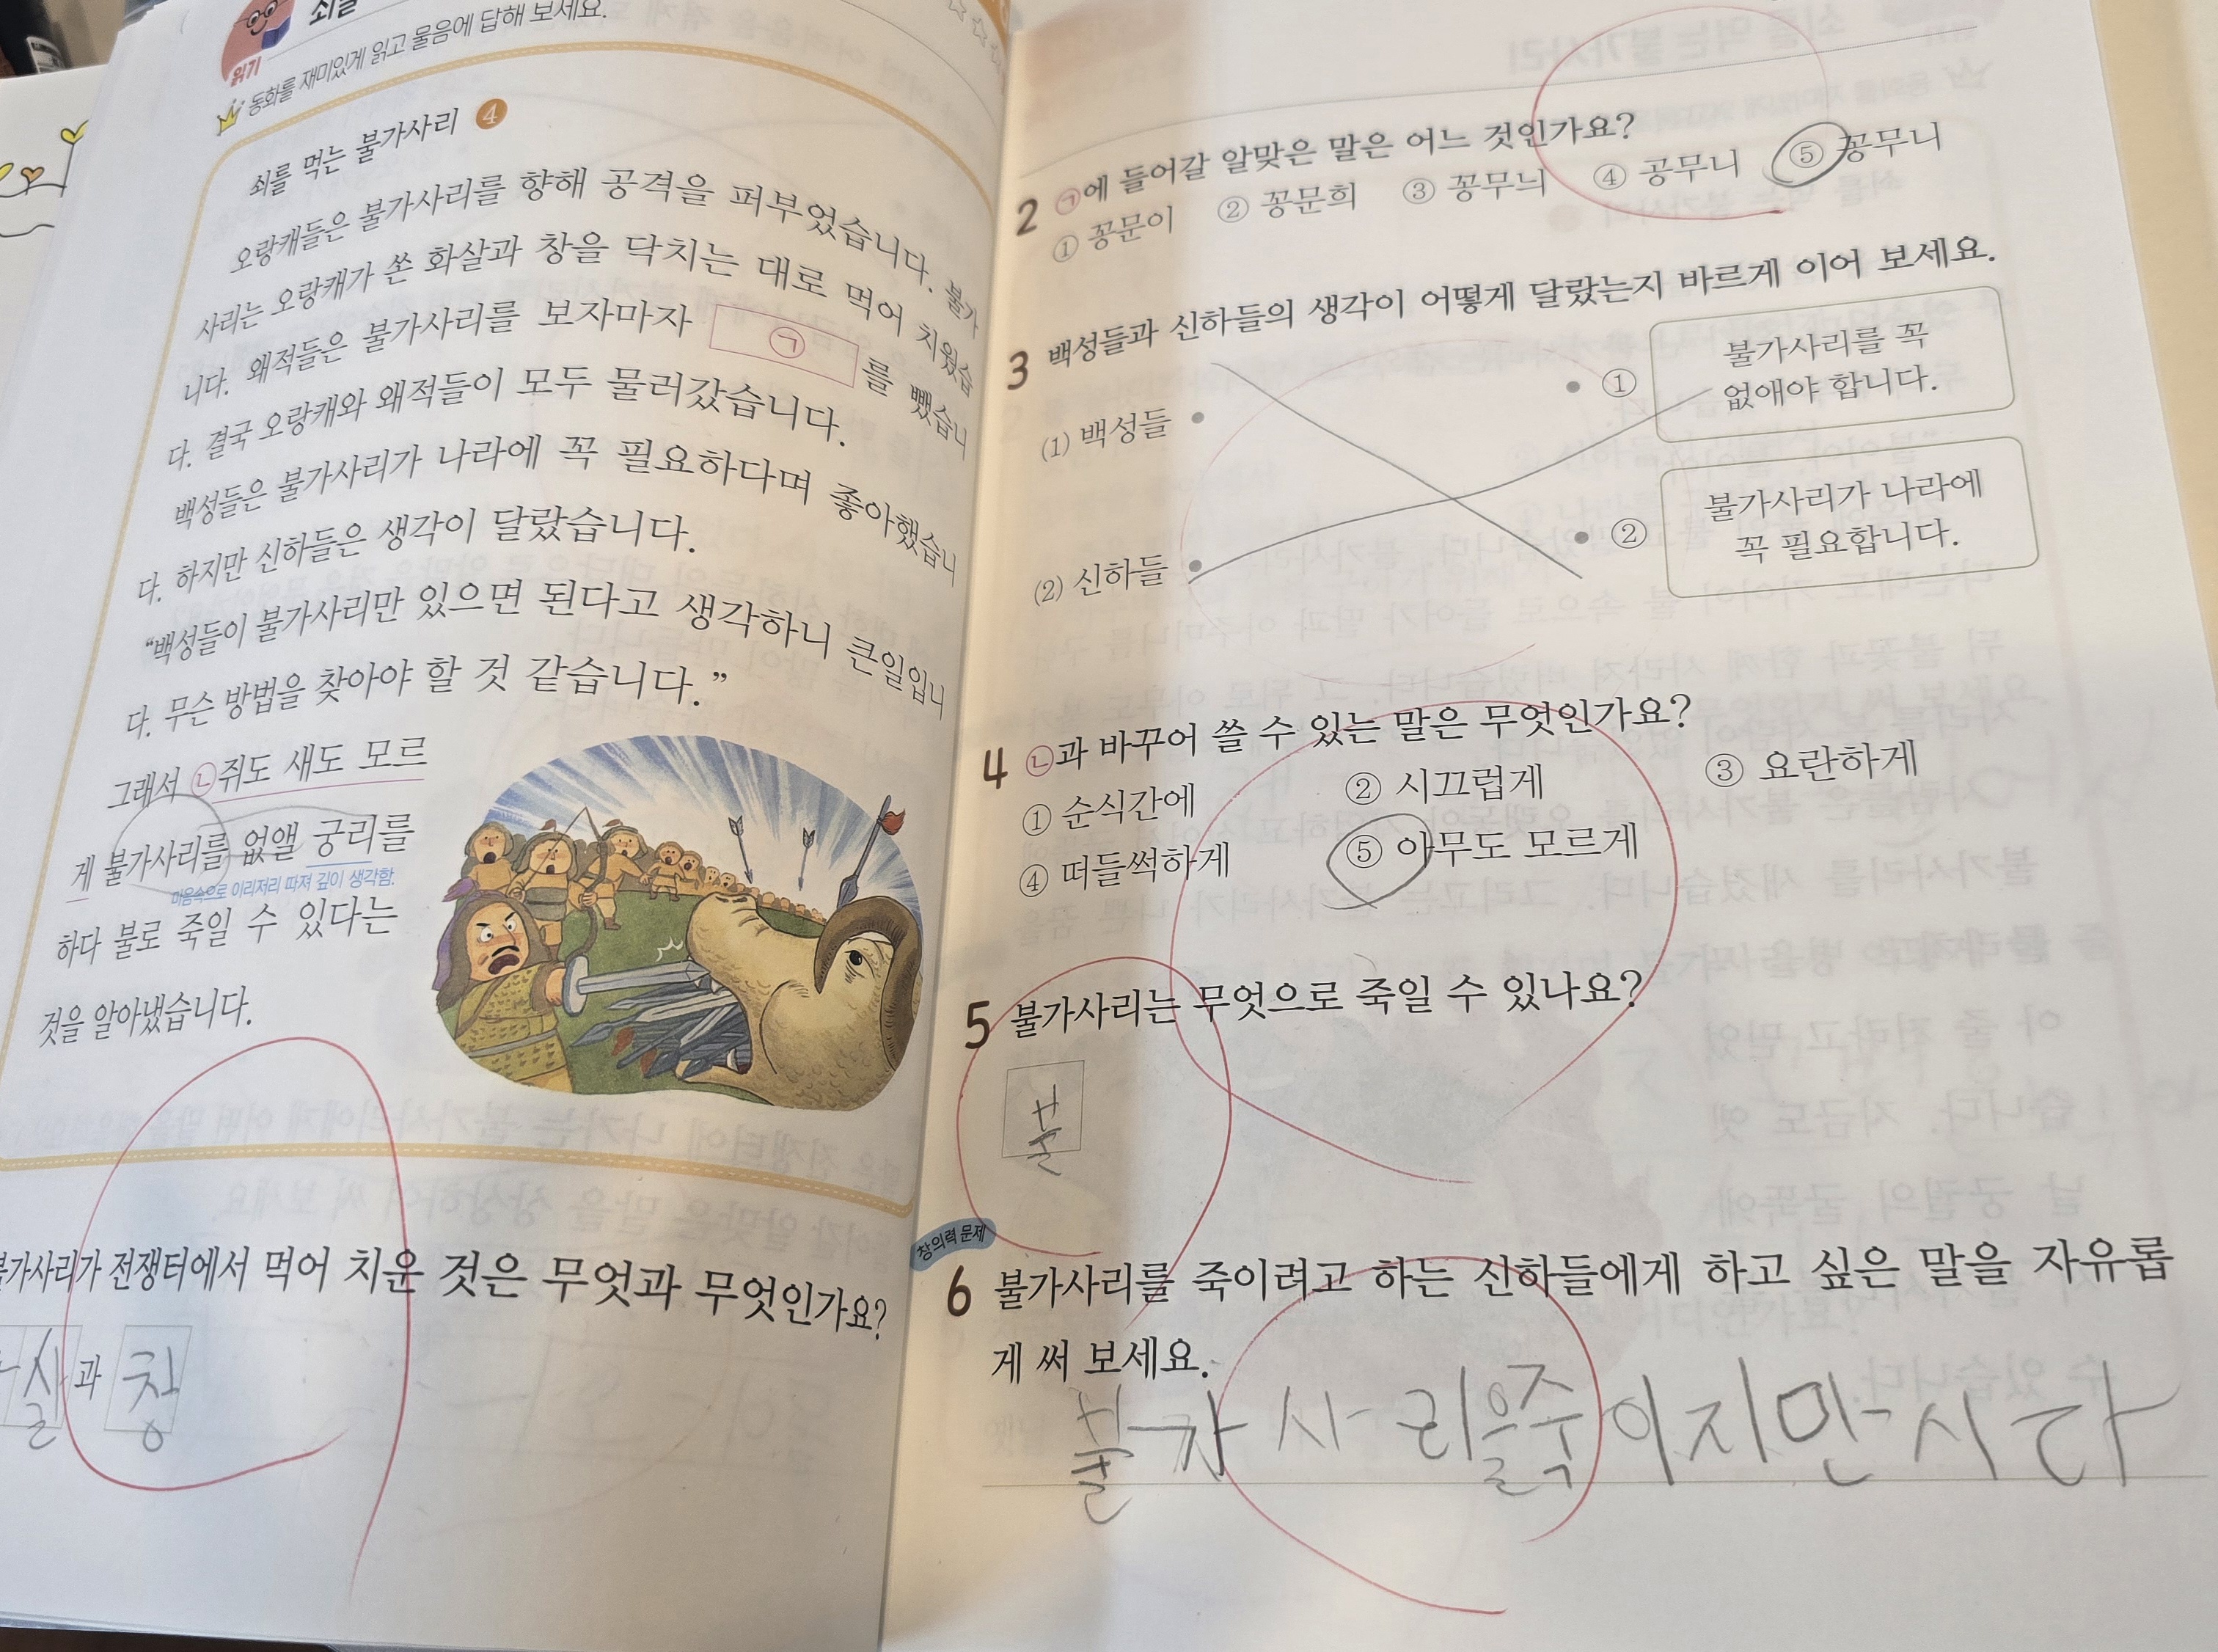 읽기
동화를 재미있게 읽고 물음에 답해 보세요.
쇠를 먹는 불가사리 4
오랑캐들은 불가사리를 향해 공격을 퍼부었습니다. 불가
사리는 오랑캐가 쏜 화살과 창을 닥치는 대로 먹어 치웠습
니다. 왜적들은 불가사리를 보자마자 ㉠를 뺐습니
다. 결국 오랑캐와 왜적들이 모두 물러갔습니다.
백성들은 불가사리가 나라에 꼭 필요하다며 좋아했습니
다. 하지만 신하들은 생각이 달랐습니다.
“백성들이 불가사리만 있으면 된다고 생각하니 큰일입니
다. 무슨 방법을 찾아야 할 것 같습니다.”
그래서 ㉡쥐도 새도 모르
게 불가사리를 없앨 궁리를
마음속으로 이리저리 따져 깊이 생각함.
하다 불로 죽일 수 있다는
것을 알아냈습니다.
불가사리가 전쟁터에서 먹어 치운 것은 무엇과 무엇인가요?
살과 창
2 ㉠에 들어갈 알맞은 말은 어느 것인가요?
① 꽁문이 ② 꽁문희 ③ 꽁무늬 ④ 공무니 ⑤ 꽁무니
3 백성들과 신하들의 생각이 어떻게 달랐는지 바르게 이어 보세요.
(1) 백성들 • • ① 불가사리를 꼭
없애야 합니다.
(2) 신하들 • • ② 불가사리가 나라에
꼭 필요합니다.
4 ㉡과 바꾸어 쓸 수 있는 말은 무엇인가요?
① 순식간에 ② 시끄럽게 ③ 요란하게
④ 떠들썩하게 ⑤ 아무도 모르게
5 불가사리는 무엇으로 죽일 수 있나요?
불
창의력 문제
6 불가사리를 죽이려고 하는 신하들에게 하고 싶은 말을 자유롭
게 써 보세요.
불가사리을죽이지만시다